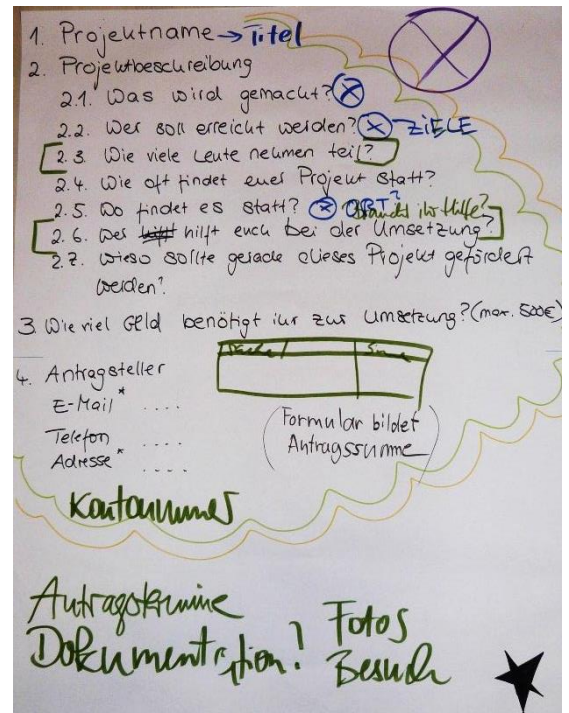 1. Projektname → Titel
2. Projektbeschreibung
2.1. Was wird gemacht? X
2.2. Wer soll erreicht werden? X → ZIELE
2.3. Wie viele Leute nehmen teil?
2.4. Wie oft findet euer Projekt statt?
2.5. Wo findet es statt? X ORT? Braucht ihr Hilfe?
2.6. Wer hilft euch bei der Umsetzung?
2.7. Wieso sollte gerade dieses Projekt gefördert
werden?
3. Wie viel Geld benötigt ihr zur Umsetzung? (max. 500€)
4. Antragsteller
E-Mail* ....
Telefon ....
Adresse* ....
(Formular bildet
Antragssumme)
Kontonummer
Antragstermine
Dokumentation! Fotos
Besuch